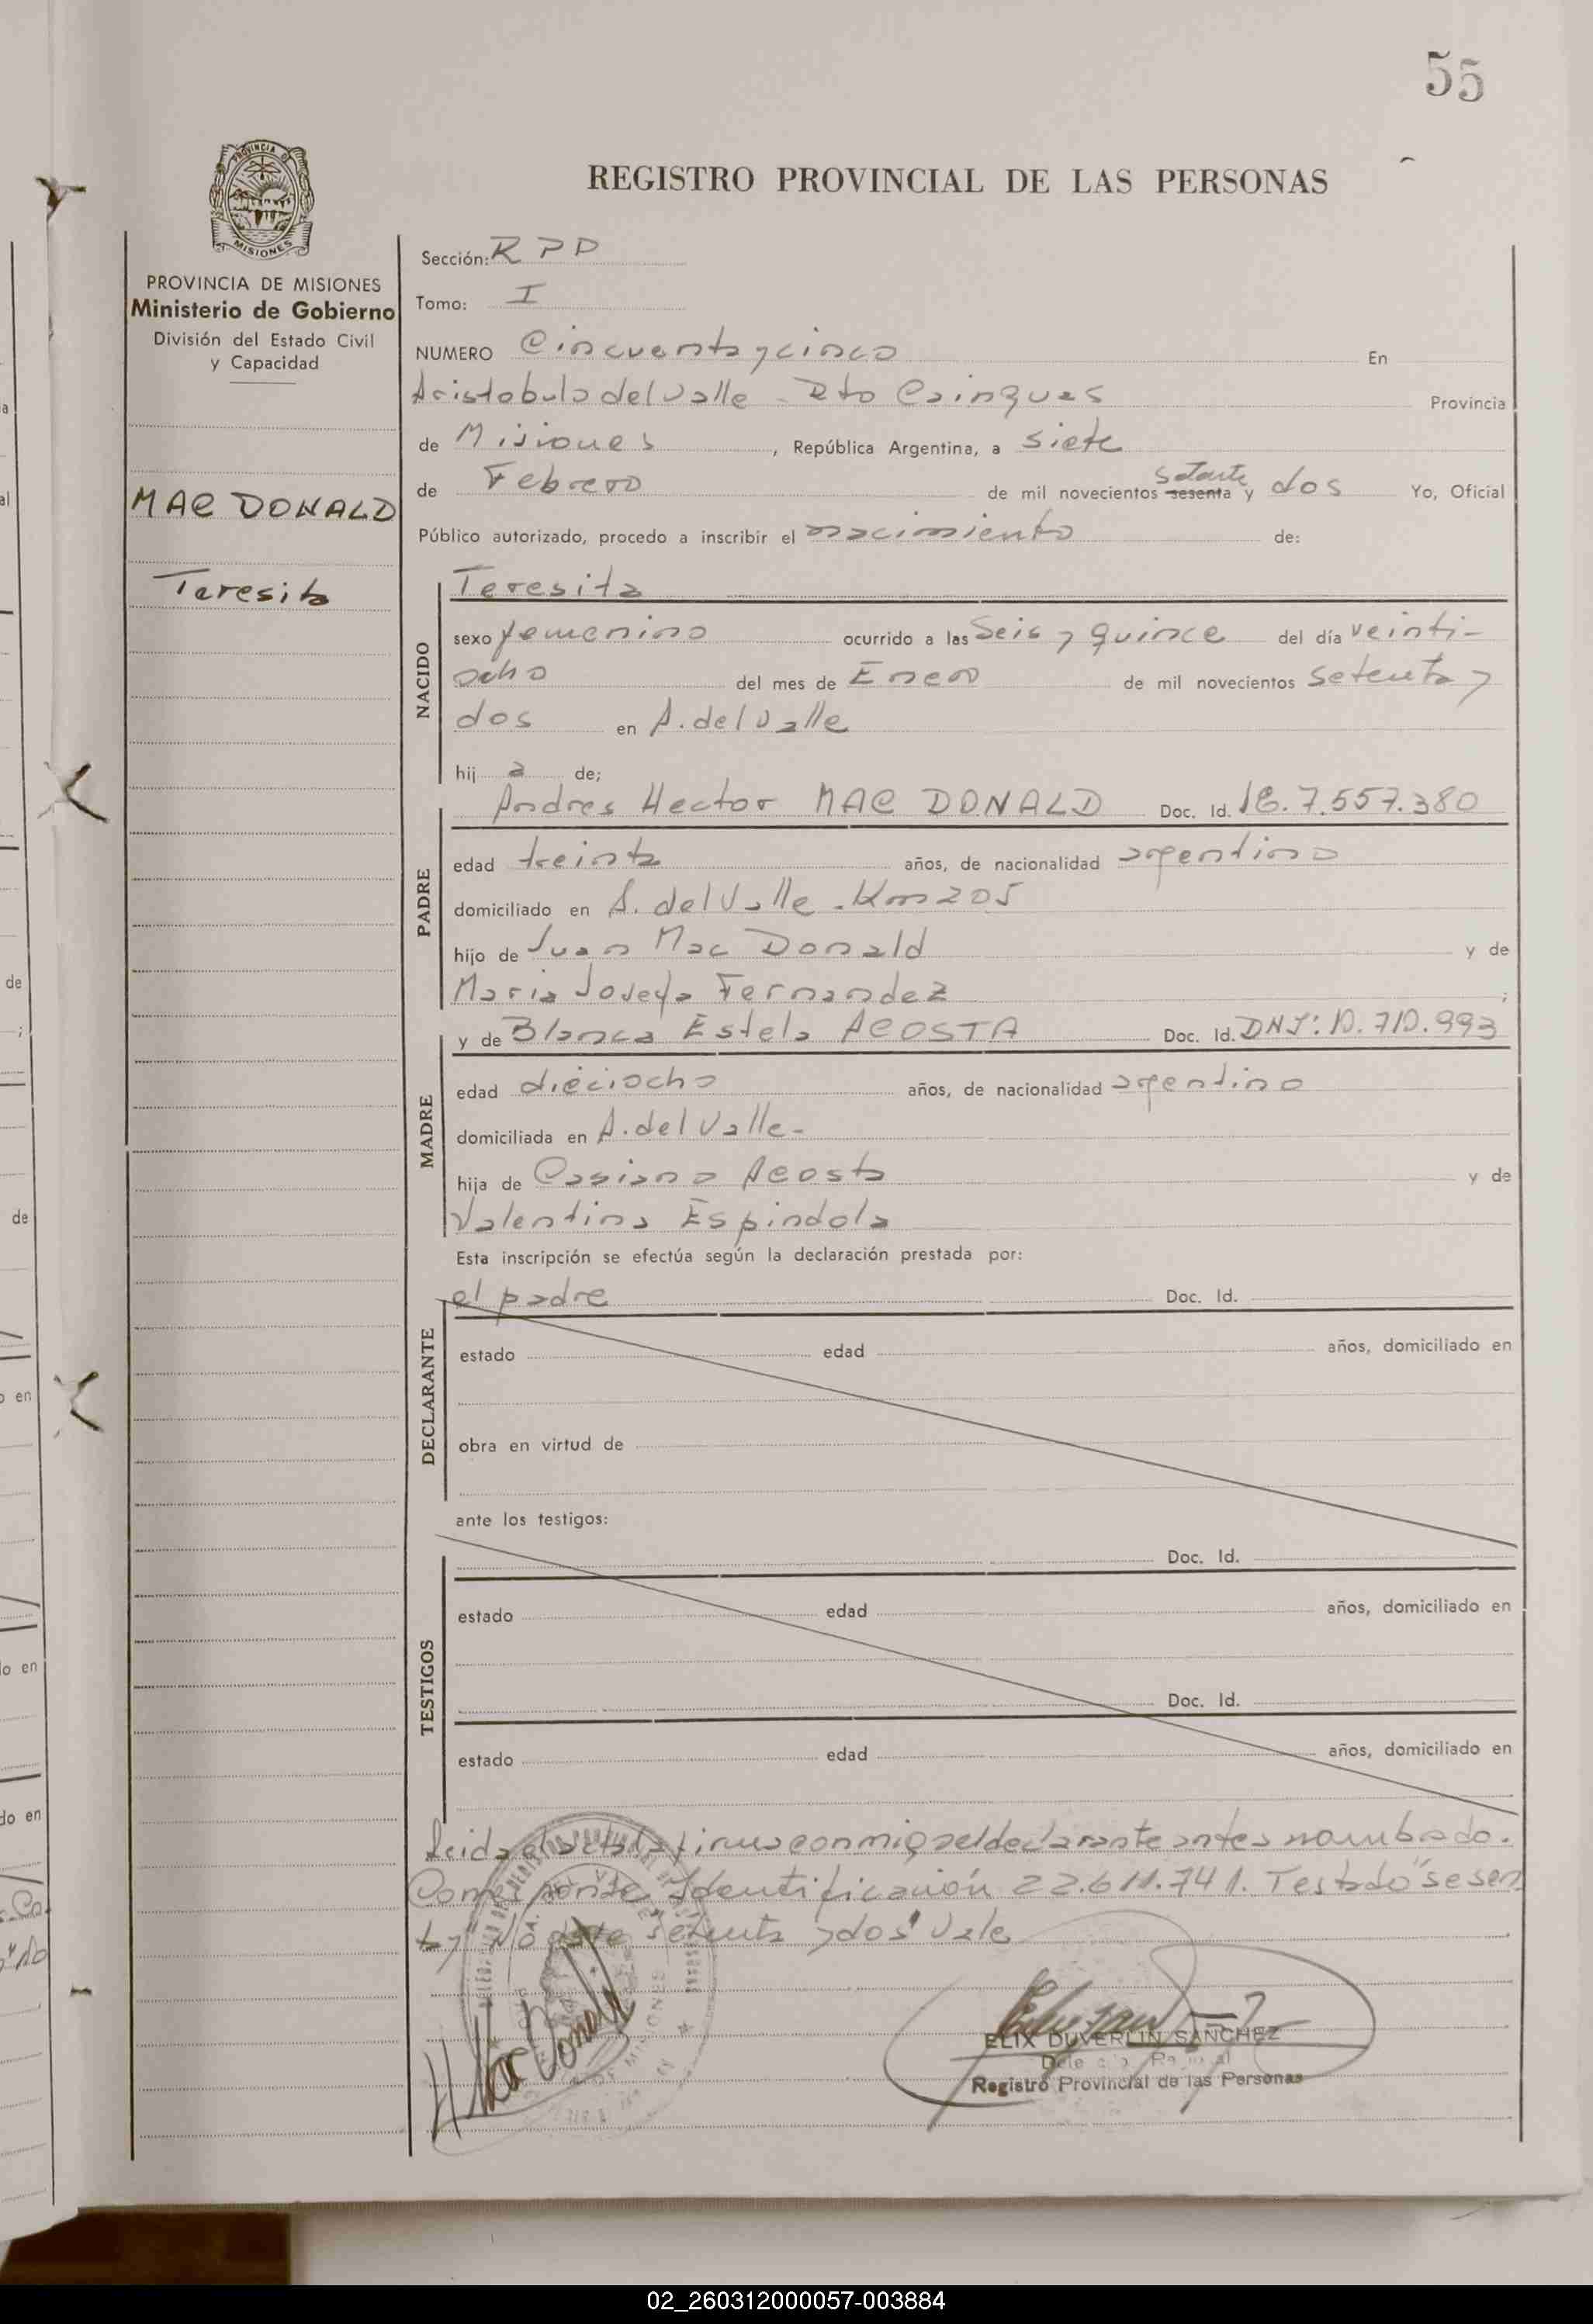 55
REGISTRO PROVINCIAL DE LAS PERSONAS
PROVINCIA DE MISIONES
Ministerio de Gobierno
División del Estado Civil
y Capacidad
MAC DONALD
Teresita
Sección: R P P
Tomo: I
NUMERO Cincuenta y cinco En
Aristobulo del Valle - Dto Cainguas Provincia
de Misiones, República Argentina, a siete
de Febrero de mil novecientos sesenta setenta y dos Yo, Oficial
Público autorizado, procedo a inscribir el nacimiento de:
NACIDO
Teresita
sexo femenino ocurrido a las Seis y quince del día veinti-
ocho del mes de Enero de mil novecientos setenta y
dos en A. del Valle
hij a de;
PADRE
Andres Hector MAC DONALD Doc. Id. 7.557.380
edad treinta años, de nacionalidad argentino
domiciliado en A. del Valle - Km 205
hijo de Juan Mac Donald y de
Maria Josefa Fernandez ;
MADRE
y de Blanca Estela ACOSTA Doc. Id. DNI: 10.710.993
edad dieciocho años, de nacionalidad argentino
domiciliada en A. del Valle -
hija de Casiano Acosta y de
Valentina Espindola
Esta inscripción se efectúa según la declaración prestada por:
DECLARANTE
el padre Doc. Id.
estado edad años, domiciliado en
obra en virtud de
ante los testigos:
TESTIGOS
Doc. Id.
estado edad años, domiciliado en
Doc. Id.
estado edad años, domiciliado en
Leida el acta la firma conmigo el declarante antes nombrado.
Corresponde Identificación 22.611.741. Testado "sesen
ta y" No vale "setenta y dos" Vale
Mac Donald
ELIX DUVERLIN SANCHEZ
Registro Provincial de las Personas
02_260312000057-003884